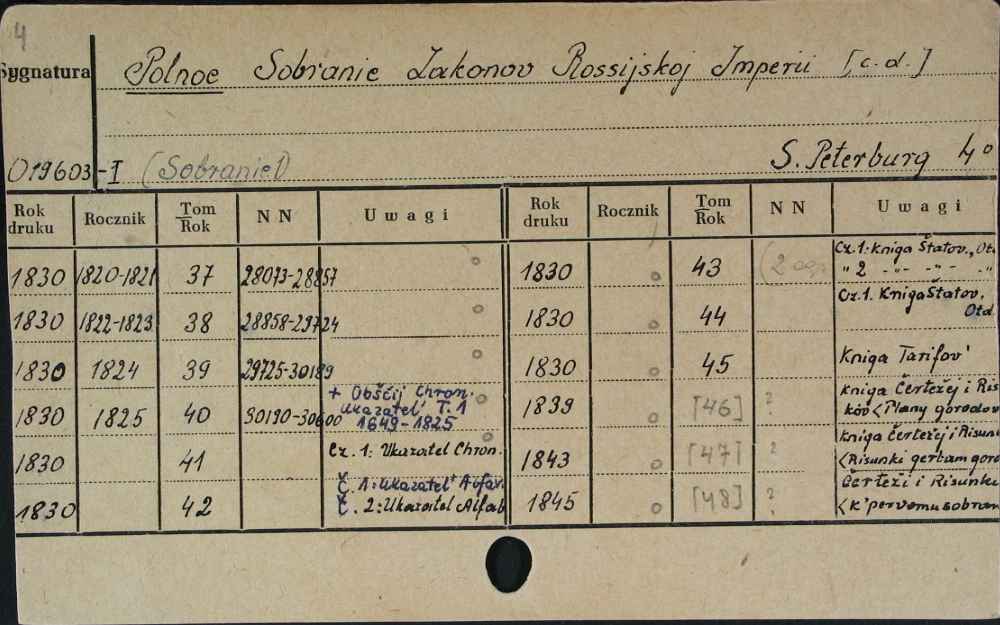 4
Sygnatura Polnoe Sobranie Zakonov Rossijskoj Imperii [c.d.]
O19603-I (Sobranie I) S. Peterburg 4°
Rok druku Rocznik Tom/Rok NN Uwagi Rok druku Rocznik Tom/Rok NN Uwagi
1830 1820-1821 37 28073-28857
1830 1822-1823 38 28858-29724
1830 1824 39 29725-30189
1830 1825 40 30190-30600 + Obščij Chron.
Ukazatel' T. 1
1649-1825
1830 41 Cz. 1: Ukazatel Chron.
1830 42 Č. 1: Ukazatel' Alfav.
Č. 2: Ukazatel Alfab
1830 43 (2 Cz. 1: Kniga Štatov., Otd
" 2 -"- -"- -"
1830 44 Cz. 1. Kniga Štatov.
Otd.
1830 45 Kniga Tarifov'
1839 [46] ? Kniga Čertežej i Ris
kov <Plany gorodov
1843 [47] ? Kniga Čertežej i Risun
<Risunki gerbam goro
1845 [48] ? Čerteži i Risunki
<k' pervomu sobran